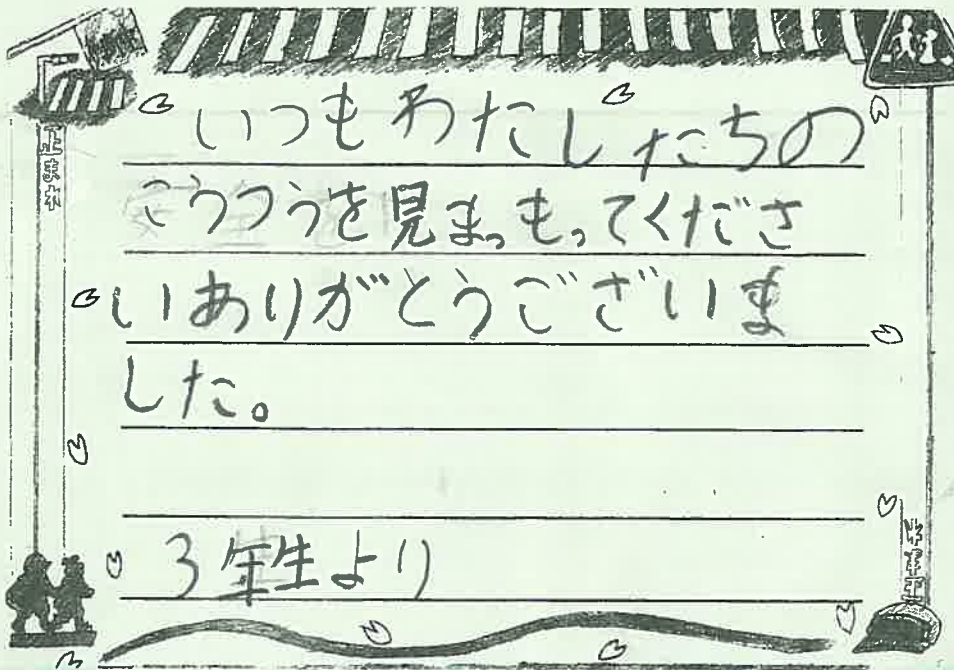 止まれ
いつもわたしたちの
こうつうを見まっもってくださ
いありがとうございま
した。
3年生より